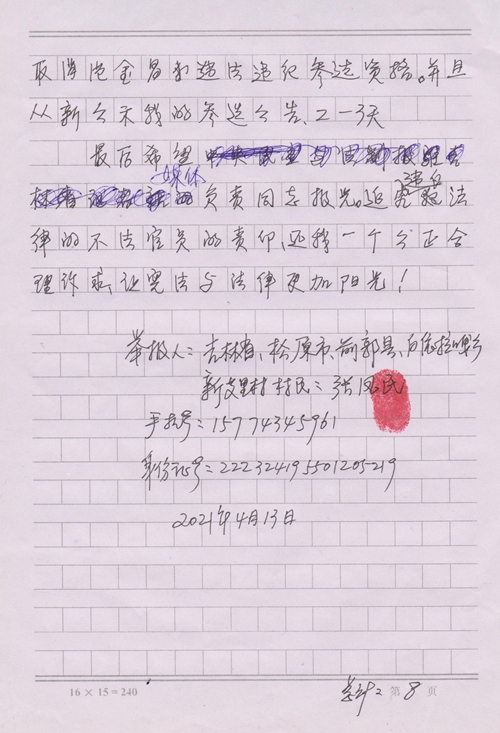 取消包金昌和违法违纪参选资格。并且
从新公示我的参选公告、2一3天
最后希望
媒体
负责同志报光。追究违反法
律的不法官员的责任,还我一个公正合
理诉求,让宪法与法律更加阳光!
举报人:吉林省、松原市、前郭县、乌依拉嘎乡
新艾里村村民:张凤民
手机号:15774345961
身份证号:222324195501205219
2021年4月13日
16 × 15 = 240
共计: 第 8 页